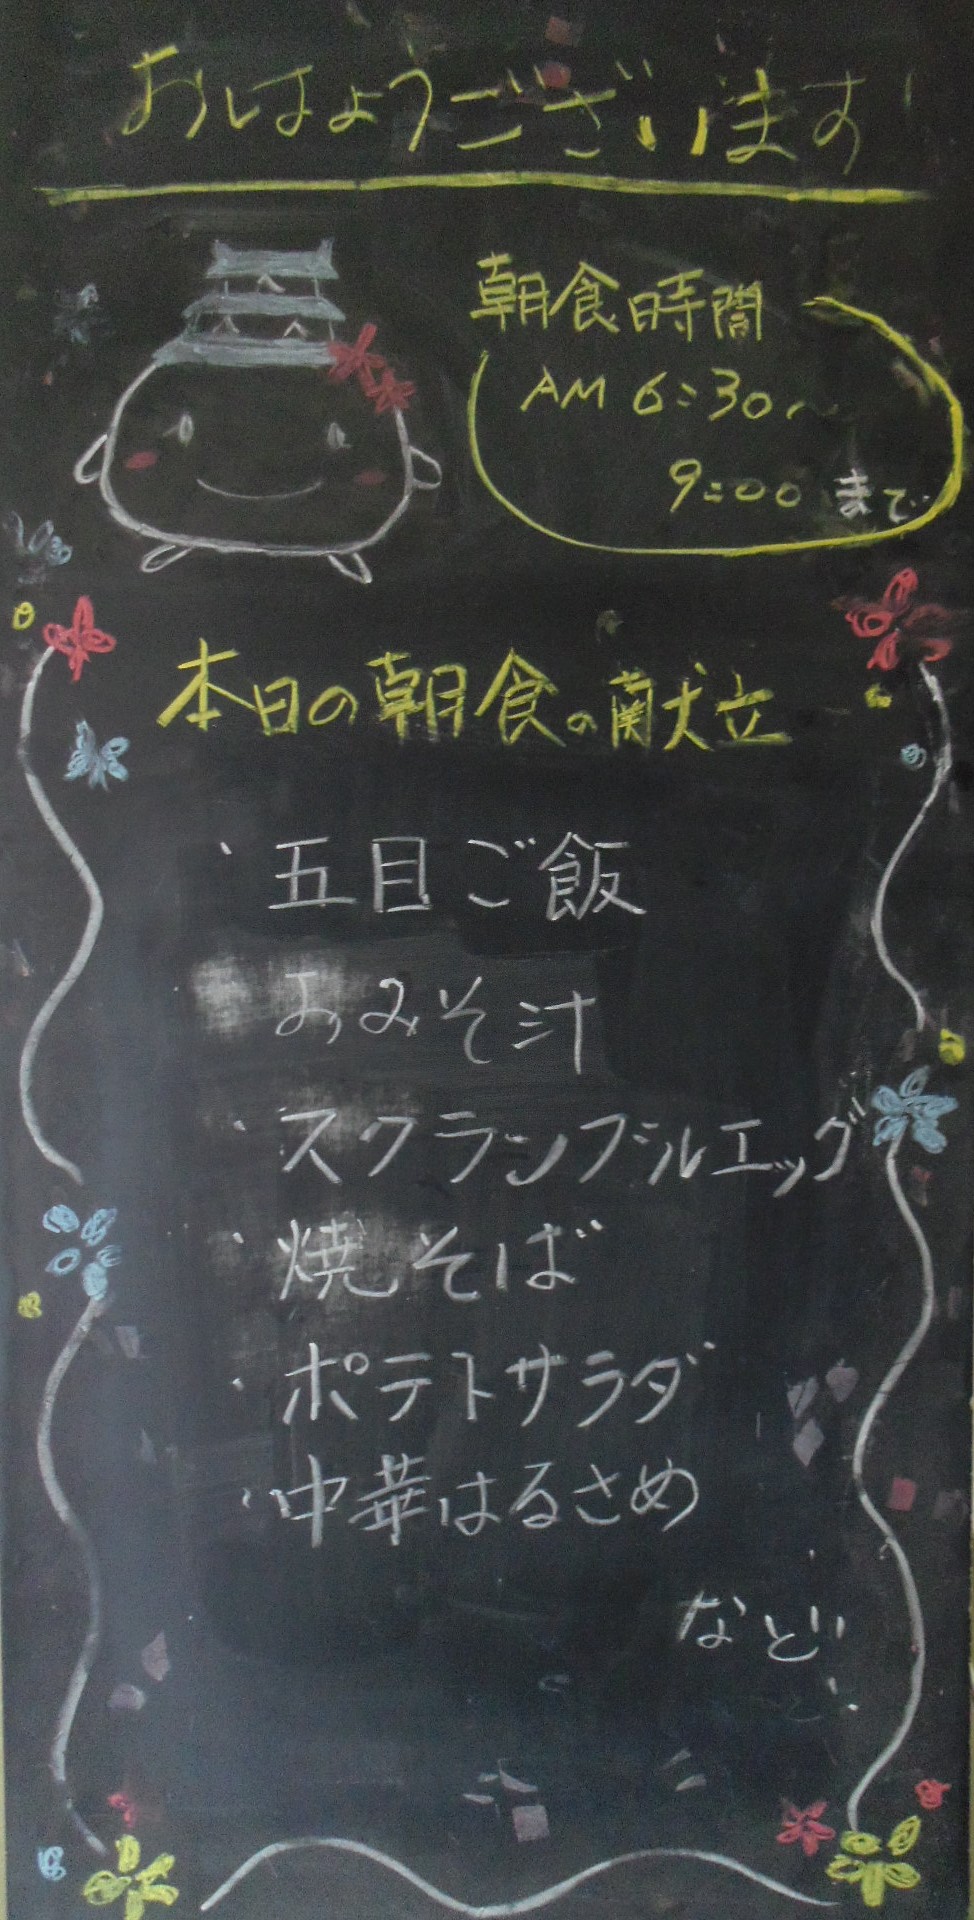 おはようございます
朝食時間
AM 6:30〜
9:00 まで
本日の朝食の献立
・五目ご飯
おみそ汁
・スクランブルエッグ
・焼そば
・ポテトサラダ
・中華はるさめ
など